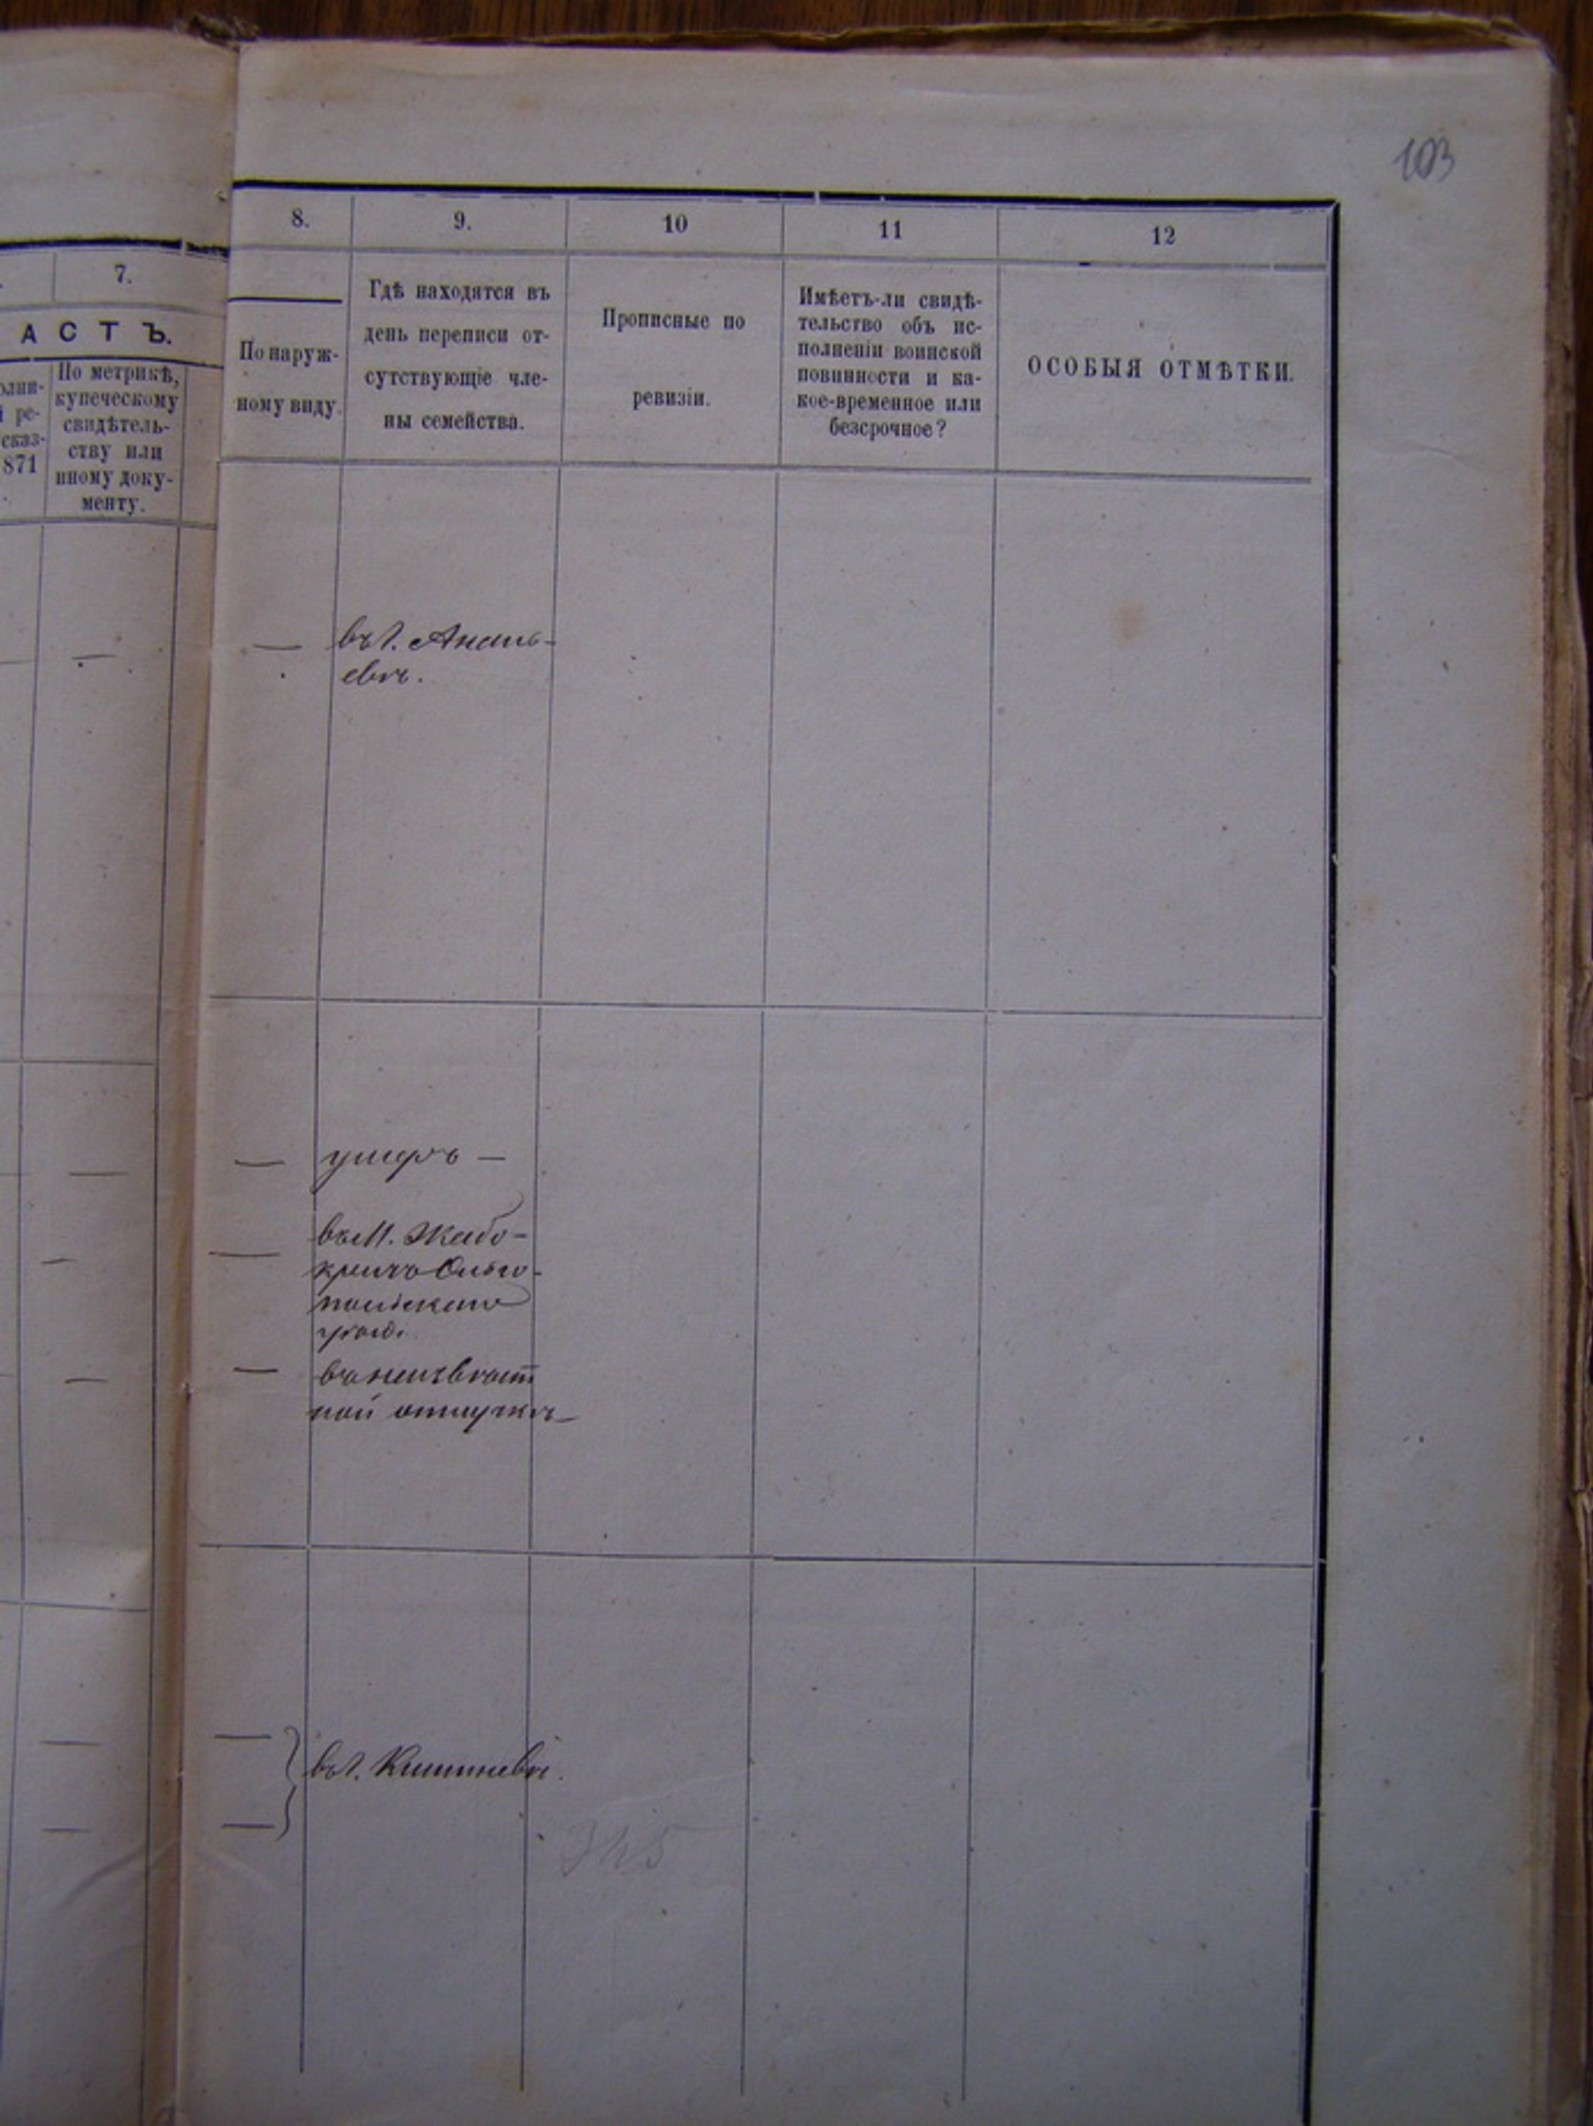 103
7.
АСТЪ.
871
По метрикѣ,
купеческому
свидѣтель-
ству или
иному доку-
менту.
8.
По наруж-
ному виду.
9.
Гдѣ находятся въ
день переписи от-
сутствующіе чле-
ны семейства.
10
Прописные по
ревизіи.
11
Имѣетъ-ли свидѣ-
тельство объ ис-
полненіи воинской
повинности и ка-
кое-временное или
безсрочное?
12
ОСОБЫЯ ОТМѢТКИ.
— въ г. Анань-
евѣ.
— умеръ —
— въ м. Жабо-
кричѣ Ольго-
польскаго
— въ неизвѣст
ной отлучкѣ
въ г. Кишиневѣ.